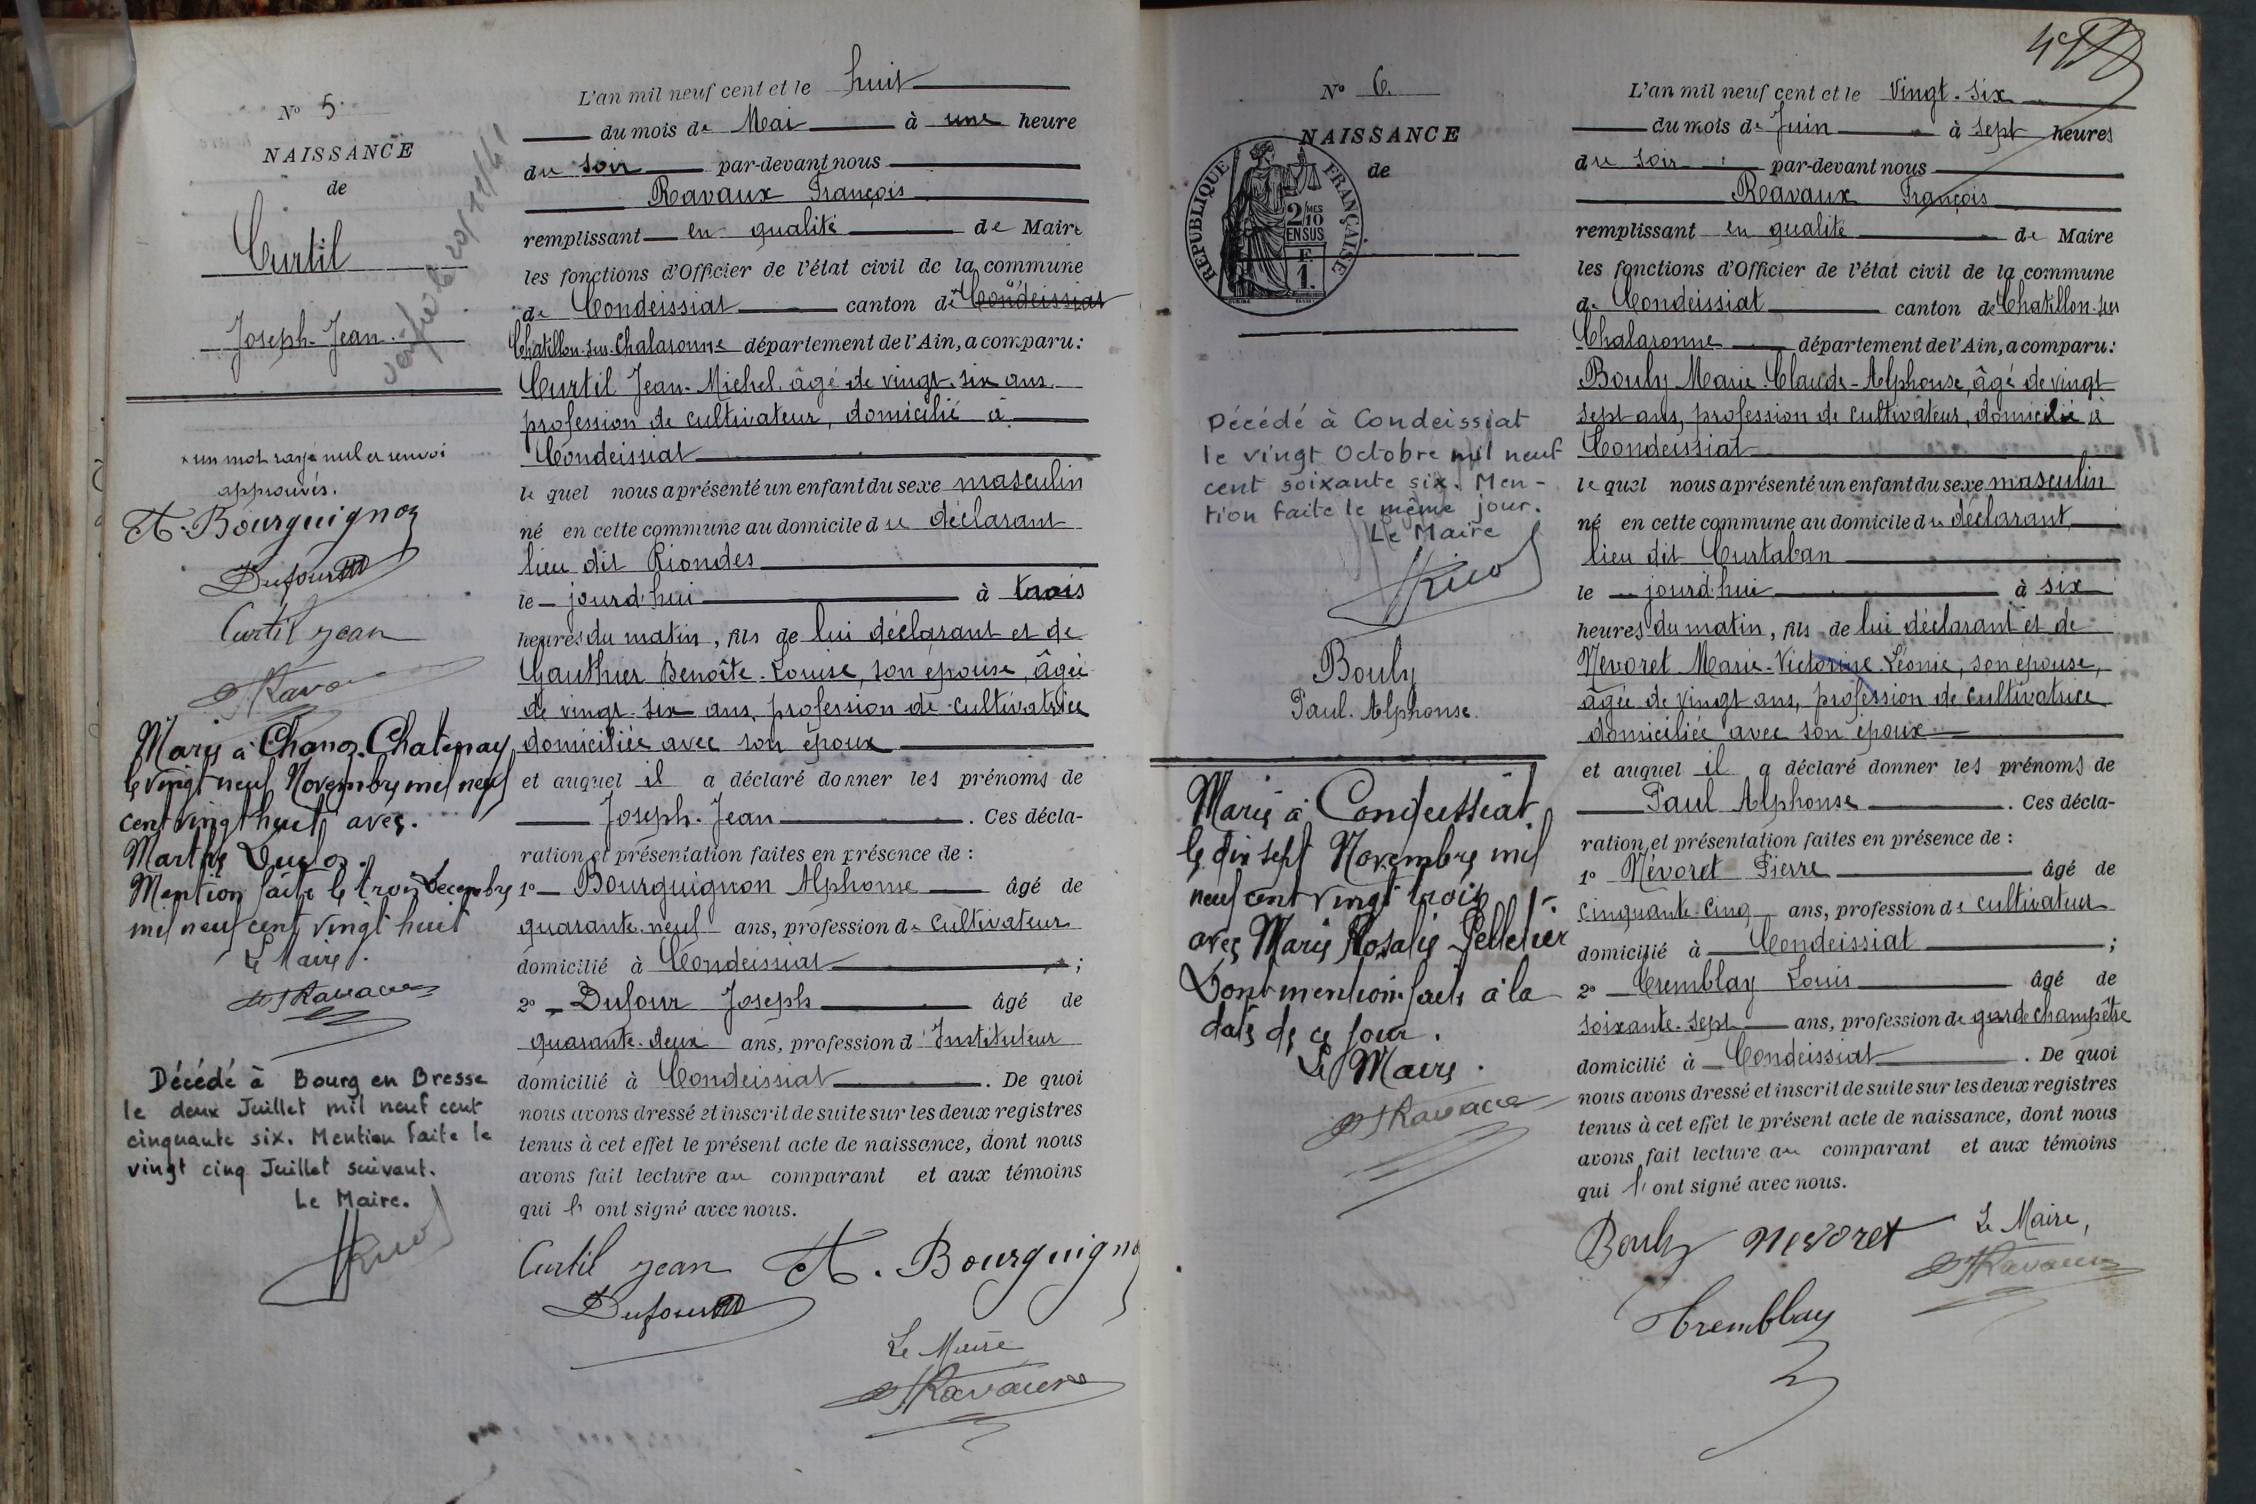 N° 5.
NAISSANCE
de
Curtil
Joseph-Jean.
vérifié le 20/11/41
x un mot rayé nul et renvoi
approuvés.
A. Bourguignon
Dufour
Curtil jean
Marié à Chanoz-Chatenay
le vingt neuf Novembre mil neuf
cent vingt huit avec.
Marthe
Mention faite le trois Decembre
mil neuf cent vingt huit
Le Maire.
Décédé à Bourg en Bresse
le deux Juillet mil neuf cent
cinquante six. Mention faite le
vingt cinq Juillet suivant.
Le Maire.
L'an mil neuf cent et le huit
du mois de Mai à une heure
du soir par-devant nous
Ravaux François
remplissant en qualité de Maire
les fonctions d'Officier de l'état civil de la commune
de Condeissiat canton de x Condeissiat
Chatillon-sur-Chalaronne département de l'Ain, a comparu:
Curtil Jean-Michel, âgé de vingt-six ans,
profession de cultivateur, domicilié à
Condeissiat
le quel nous a présenté un enfant du sexe masculin
né en cette commune au domicile du déclarant
lieu dit Riondes
le jourd'hui à trois
heures du matin, fils de lui déclarant et de
Gauthier Benoîte-Louise, son épouse, âgée
de vingt-six ans, profession de cultivatrice
domiciliée avec son époux
et auquel il a déclaré donner les prénoms de
Joseph-Jean. Ces décla-
ration et présentation faites en présence de :
1° Bourguignon Alphonse âgé de
quarante-neuf ans, profession de cultivateur
domicilié à Condeissiat ;
2° Dufour Joseph âgé de
quarante-deux ans, profession d'Instituteur
domicilié à Condeissiat. De quoi
nous avons dressé et inscrit de suite sur les deux registres
tenus à cet effet le présent acte de naissance, dont nous
avons fait lecture au comparant et aux témoins
qui l' ont signé avec nous.
Curtil jean A. Bourguignon
Dufour
Le Maire
Ravaux
4e
N° 6
NAISSANCE
de
REPUBLIQUE FRANÇAISE
2/10 MES
EN SUS
F.
1.
Décédé à Condeissiat
le vingt Octobre mil neuf
cent soixante six. Men-
tion faite le même jour.
Le Maire
Bouly
Paul-Alphonse.
Marié à Condeissiat
le dix sept Novembre mil
neuf cent vingt trois
avec Marie Rosalie Pelletier
Dont mention faite à la
date de ce jour.
Le Maire.
Ravaux
L'an mil neuf cent et le vingt-six
du mois de Juin à sept heures
du soir par-devant nous
Ravaux François
remplissant en qualité de Maire
les fonctions d'Officier de l'état civil de la commune
de Condeissiat canton de Chatillon-sur
Chalaronne département de l'Ain, a comparu:
Bouly Marie-Claude-Alphonse, âgé de vingt
sept ans, profession de cultivateur, domicilié à
Condeissiat
le quel nous a présenté un enfant du sexe masculin
né en cette commune au domicile du déclarant
lieu dit Curtaban
le jourd'hui à six
heures du matin, fils de lui déclarant et de
Névoret Marie-Victorine-Léonie, son épouse,
âgée de vingt ans, profession de cultivatrice
domiciliée avec son époux
et auquel il a déclaré donner les prénoms de
Paul Alphonse. Ces décla-
ration et présentation faites en présence de :
1° Névoret Pierre âgé de
cinquante-cinq ans, profession de cultivateur
domicilié à Condeissiat ;
2° Tremblay Louis âgé de
soixante-sept ans, profession de garde champêtre
domicilié à Condeissiat. De quoi
nous avons dressé et inscrit de suite sur les deux registres
tenus à cet effet le présent acte de naissance, dont nous
avons fait lecture au comparant et aux témoins
qui l' ont signé avec nous.
Bouly Nevoret Le Maire,
Ravaux
Tremblay